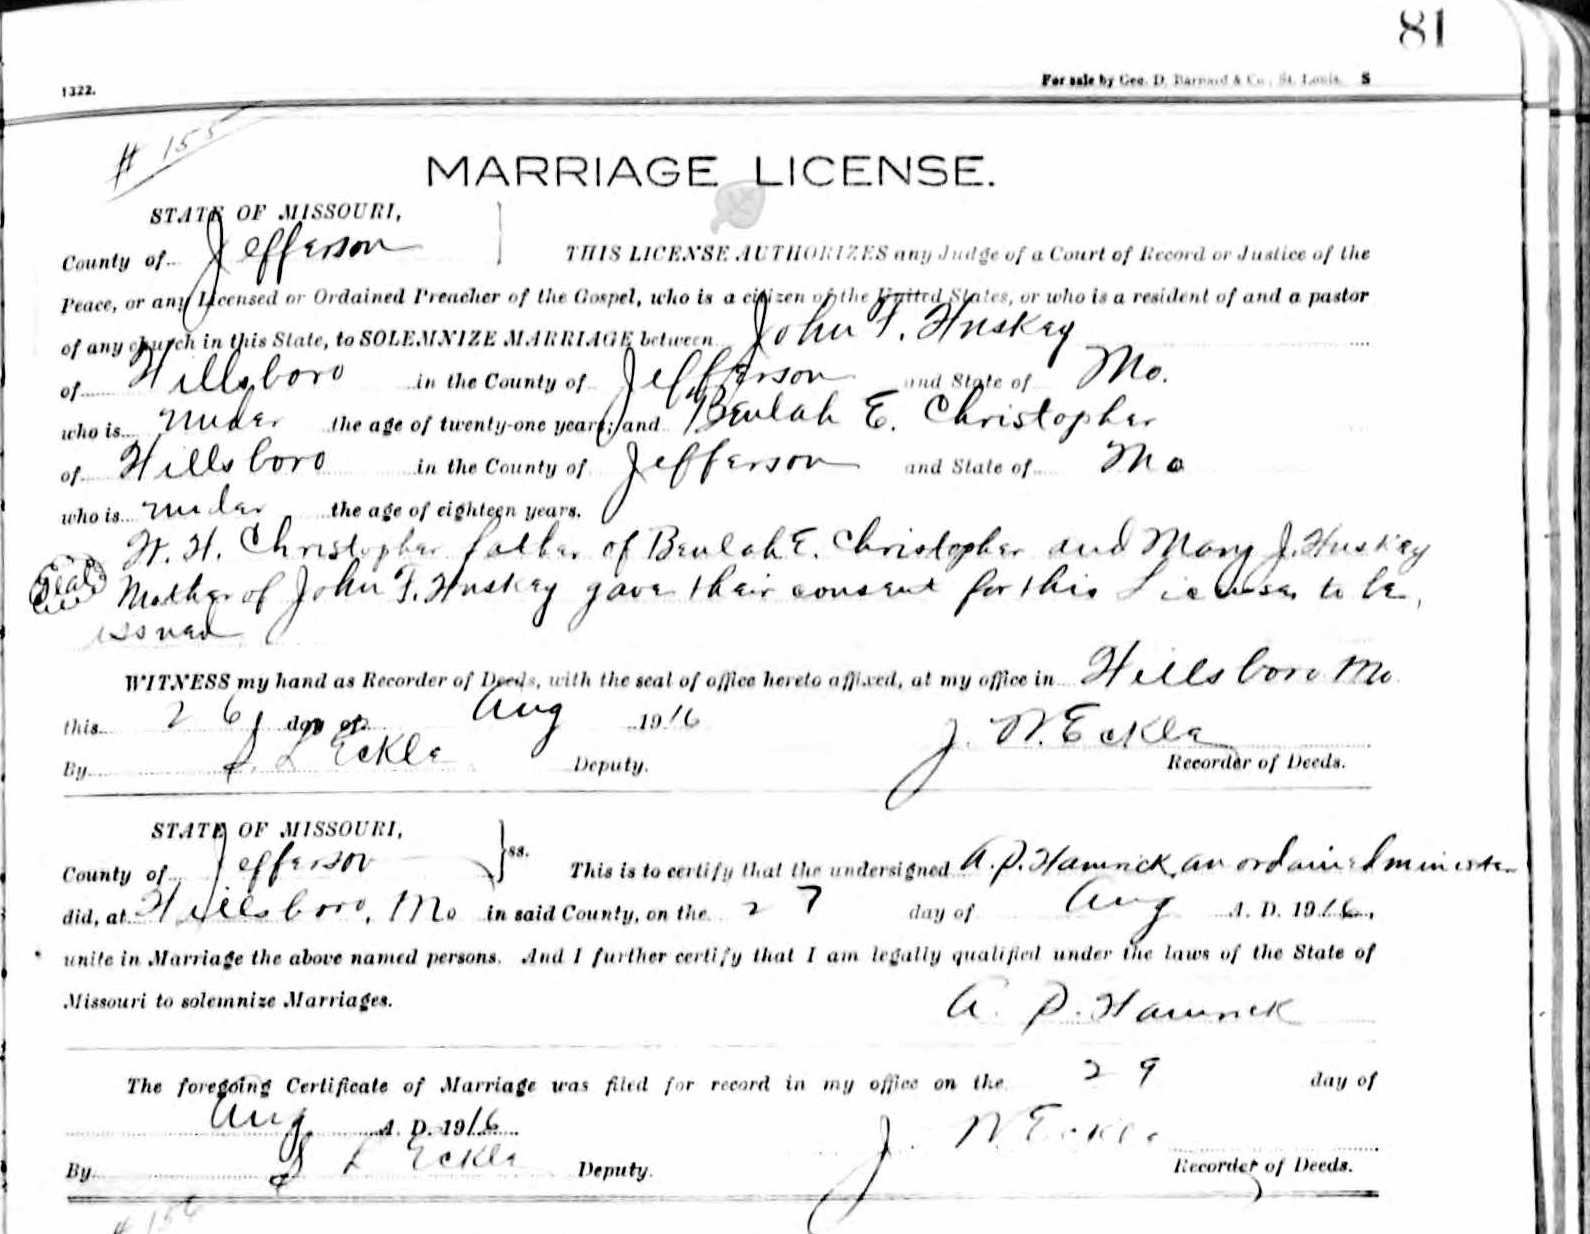 81
1322.
For sale by Geo. D. Barnard & Co., St. Louis. S
# 155
MARRIAGE LICENSE.
STATE OF MISSOURI,
County of Jefferson THIS LICENSE AUTHORIZES any Judge of a Court of Record or Justice of the
Peace, or any Licensed or Ordained Preacher of the Gospel, who is a citizen of the United States, or who is a resident of and a pastor
of any church in this State, to SOLEMNIZE MARRIAGE between John F. Huskey
of Hillsboro in the County of Jefferson and State of Mo.
who is under the age of twenty-one years; and Beulah E. Christopher
of Hillsboro in the County of Jefferson and State of Mo
who is under the age of eighteen years.
W. H. Christopher father of Beulah E. Christopher and Mary J. Huskey
Seal
Mother of John F. Huskey gave their consent for this License to be
issued
WITNESS my hand as Recorder of Deeds, with the seal of office hereto affixed, at my office in Hillsboro Mo
this 26 day of Aug 1916
J. W. Eckle
By S. L Eckle Deputy. Recorder of Deeds.
STATE OF MISSOURI,
County of Jefferson ss. This is to certify that the undersigned A. P. Hamrick, an ordained minister
did, at Hillsboro, Mo in said County, on the 27 day of Aug A. D. 1916,
unite in Marriage the above named persons. And I further certify that I am legally qualified under the laws of the State of
Missouri to solemnize Marriages.
A. P. Hamrick
The foregoing Certificate of Marriage was filed for record in my office on the 29 day of
Aug. A. D. 1916
J. W. Eckle
By S L Eckle Deputy. Recorder of Deeds.
# 156